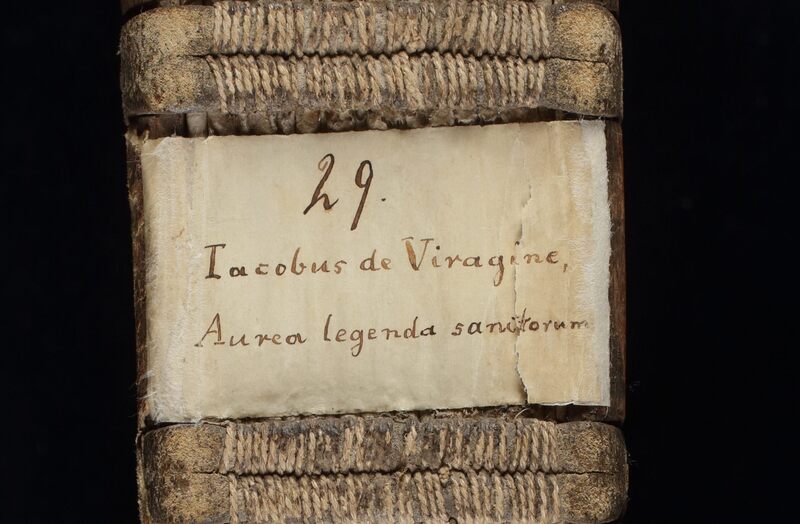 29.
Iacobus de Viragine,
Aurea legenda sanctorum